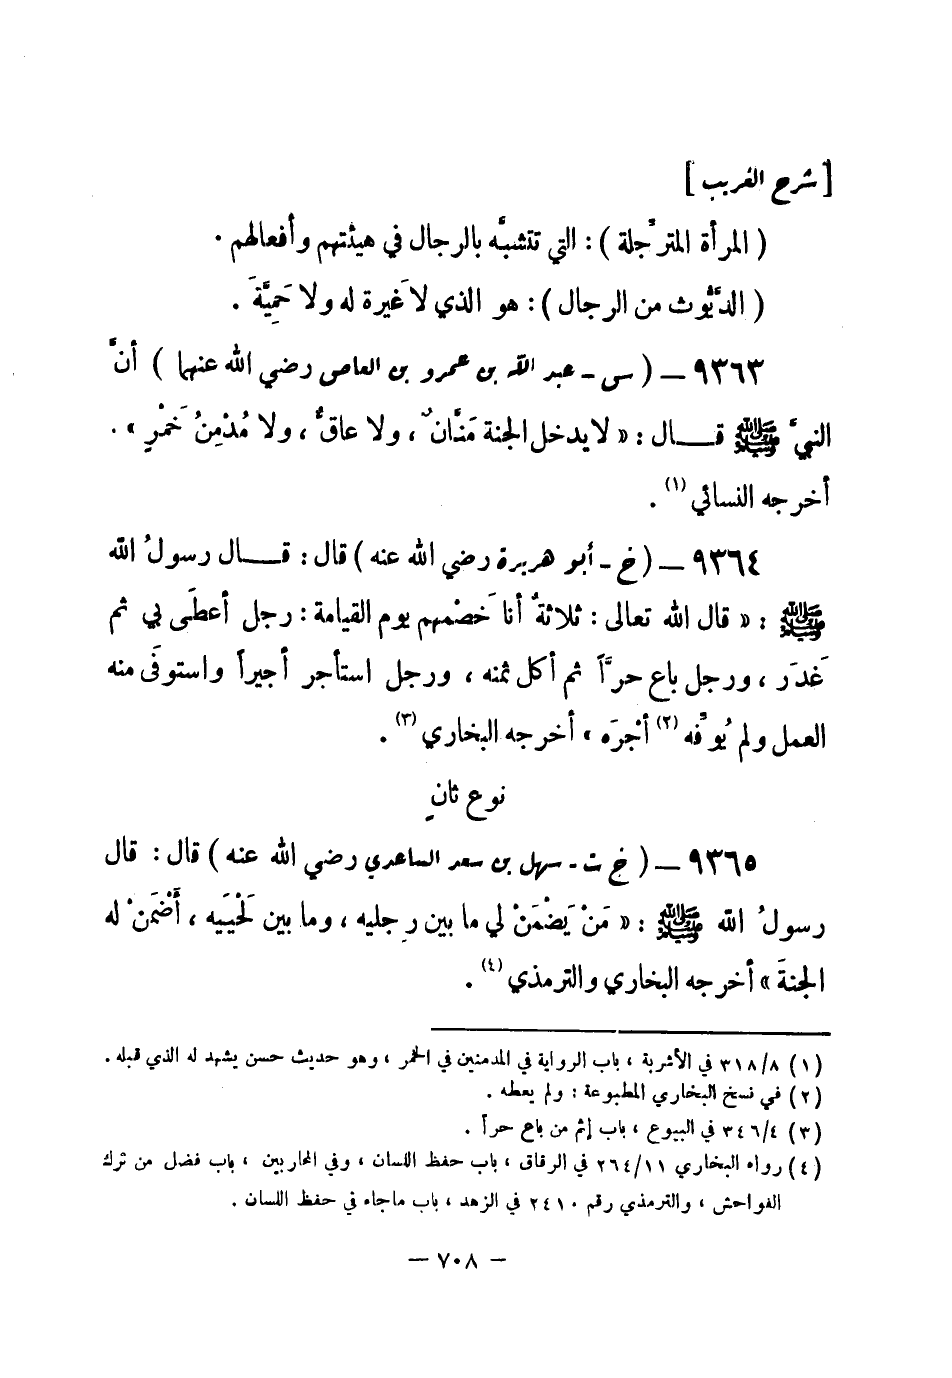 [ شرح الغريب ]
( المرأة المترجِّلة ) : التي تتشبَّه بالرجال في هيئتهم وأفعالهم .
( الدَّيُّوث من الرجال ) : هو الذي لا غَيرة له ولا حَمِيَّةَ .
٩٣٦٣ – ( س - عبد الله بن عمرو بن العاص رضي الله عنهما ) أنَّ
النبيَّ ﷺ قال : « لا يدخل الجنة مَنَّانٌ ، ولا عاقٌّ ، ولا مُدْمِنُ خَمْرٍ » .
أخرجه النسائي (١) .
٩٣٦٤ – ( خ - أبو هريرة رضي الله عنه ) قال : قال رسولُ الله
ﷺ : « قال الله تعالى : ثلاثةٌ أنا خَصْمهم يوم القيامة : رجل أعطَى بي ثم
غَدَرَ ، ورجل باع حرَّاً ثم أكل ثمنه ، ورجل استأجر أجيراً واستوفَى منه
العمل ولم يُوَفِّه (٢) أجْرَه » أخرجه البخاري (٣) .
نوع ثانٍ
٩٣٦٥ – ( خ ت - سهل بن سعد الساعدي رضي الله عنه ) قال : قال
رسولُ الله ﷺ : « مَنْ يَضْمَنْ لي ما بين رِجليه ، وما بين لَحْيَيه ، أَضْمَنْ له
الجنةَ » أخرجه البخاري والترمذي (٤) .
(١) ٣١٨/٨ في الأشربة ، باب الرواية في المدمنين في الخمر ، وهو حديث حسن يشهد له الذي قبله .
(٢) في نسخ البخاري المطبوعة : ولم يعطه .
(٣) ٣٤٦/٤ في البيوع ، باب إثم من باع حراً .
(٤) رواه البخاري ٢٦٤/١١ في الرقاق ، باب حفظ اللسان ، وفي المحاربين ، باب فضل من ترك
الفواحش ، والترمذي رقم ٢٤١٠ في الزهد ، باب ماجاء في حفظ اللسان .
– ٧٠٨ –